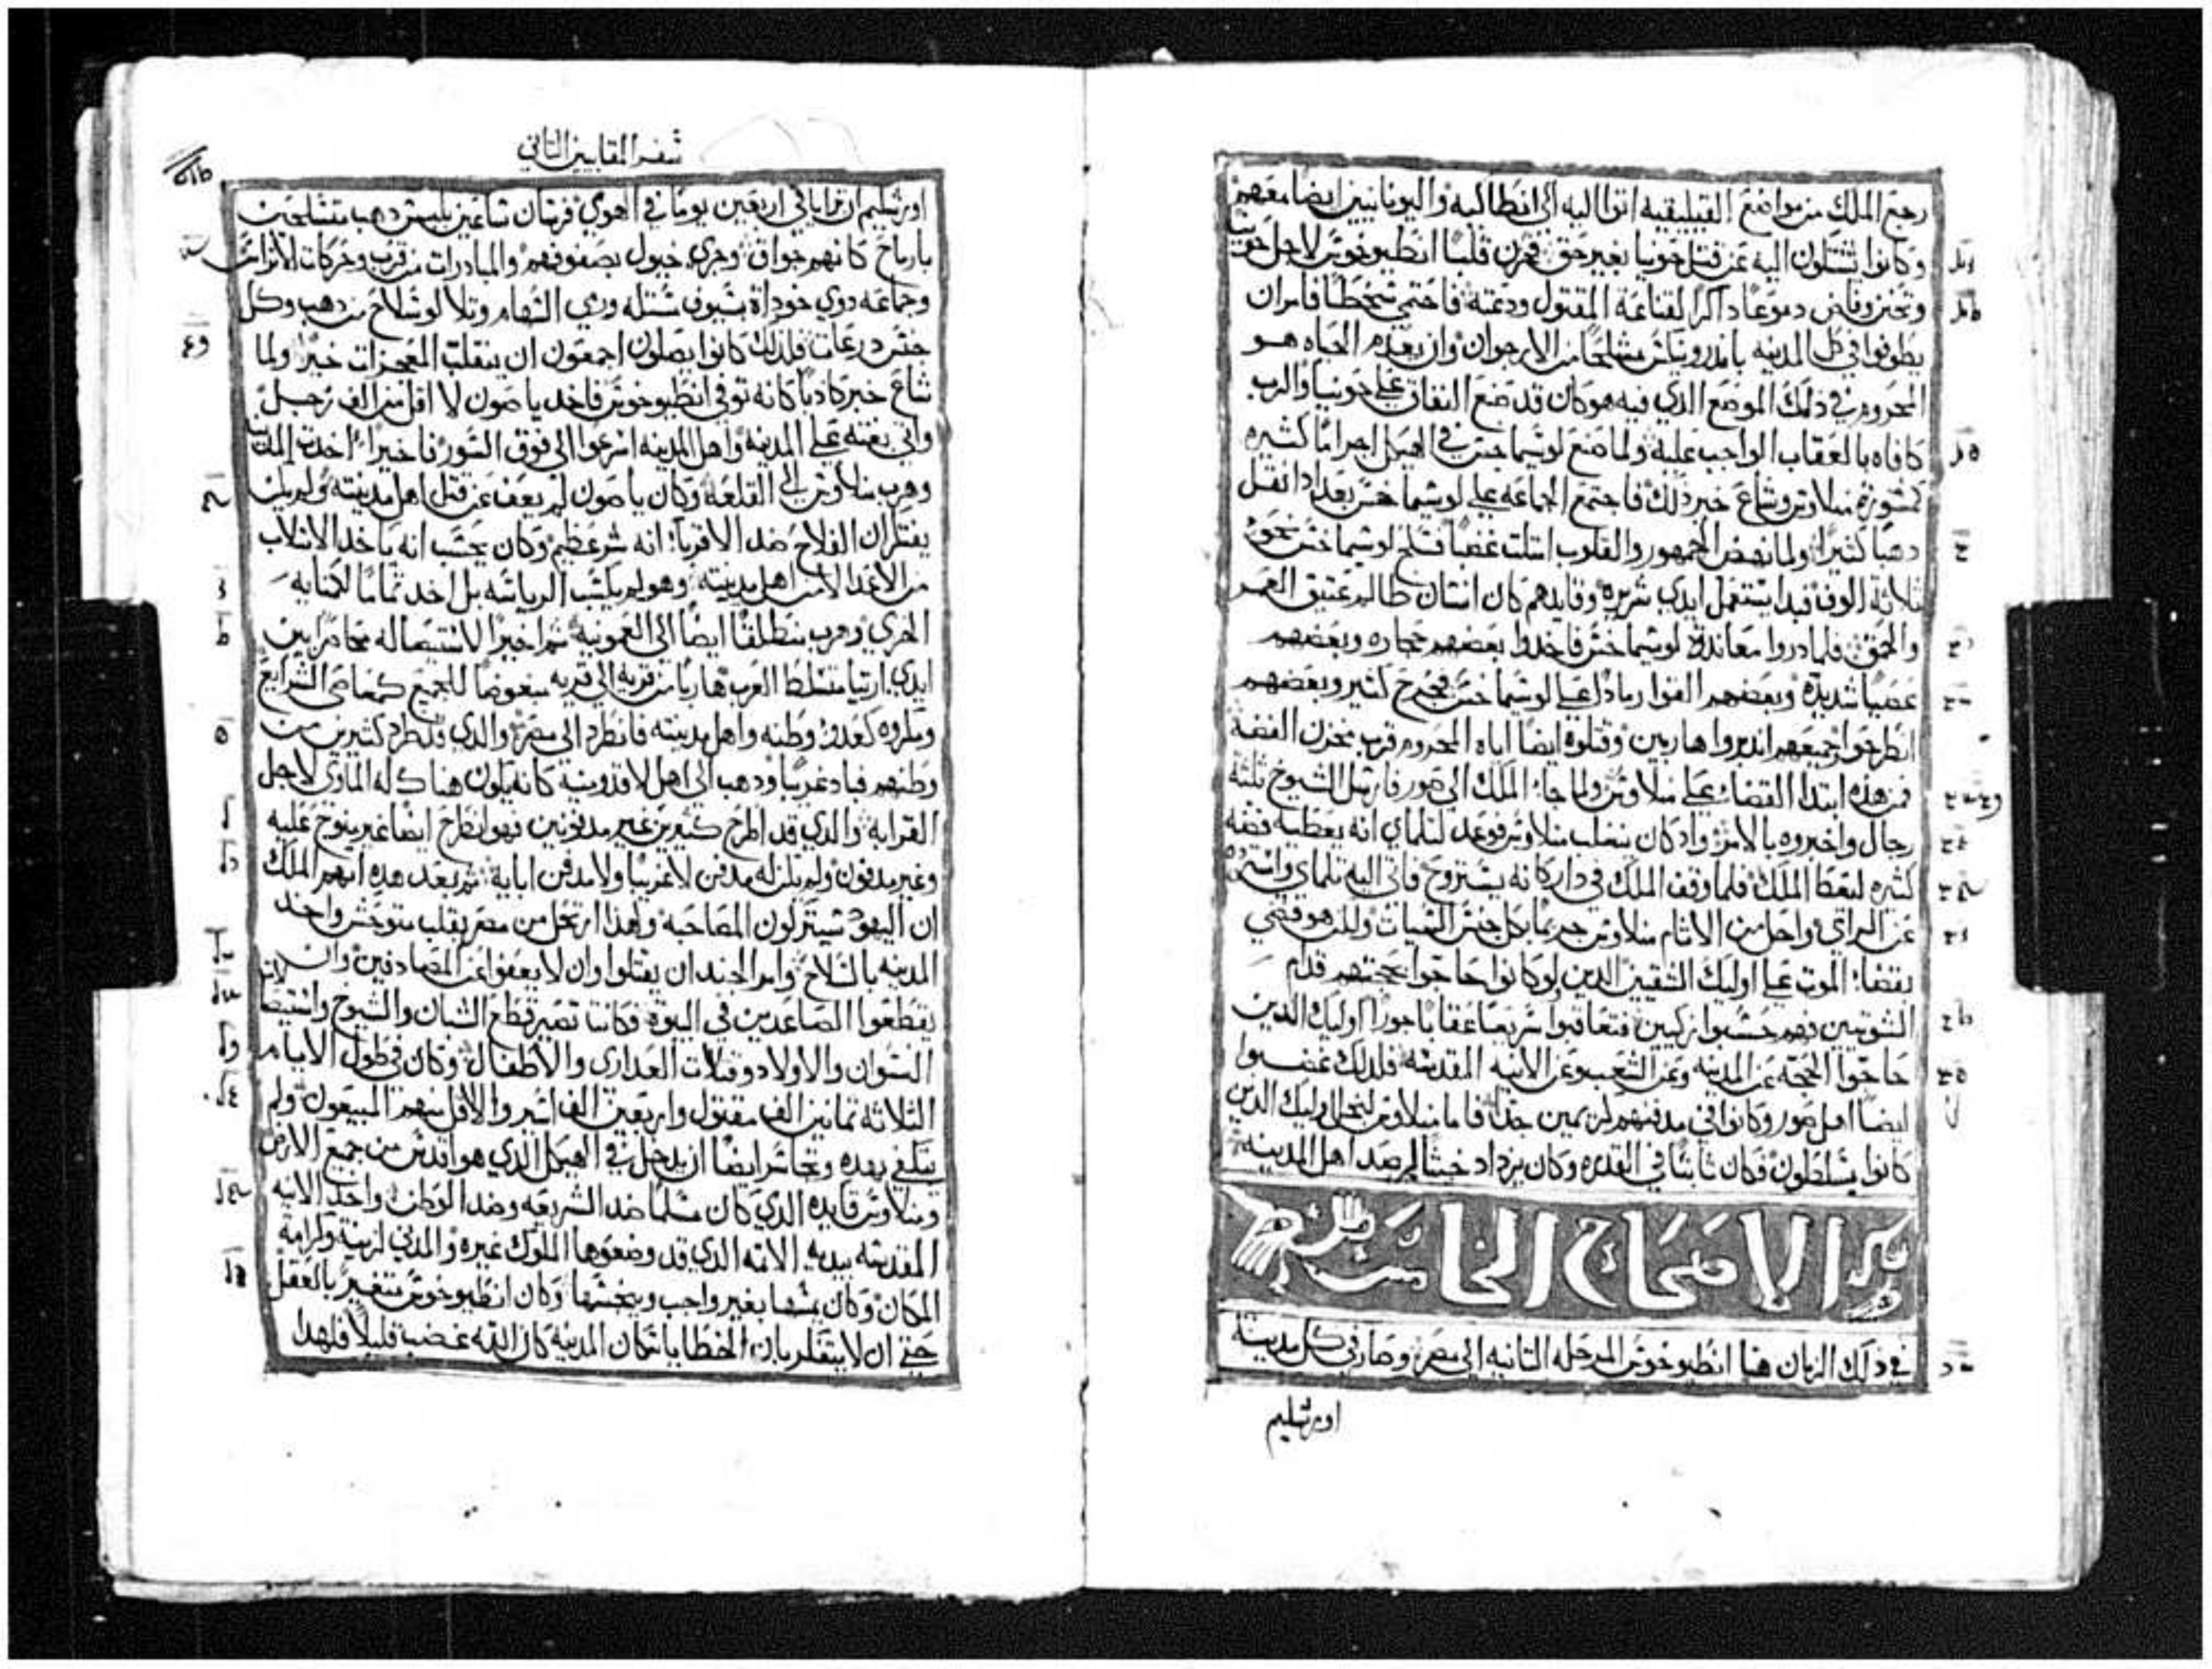 رجع الملك من مواضع القيليقيه اتوا اليه الي انطاكيه واليونانيين ايضا معهم
وكانوا يشتكون اليه عن قتل حونيا بغير حق فحزن قلبا انطيوخوس لاجل حونيا
وتحنن وفاض دموعا داكرا لقناعة المقتول ودعته فاحتمي سخطا فامر ان
يطوفوا في كل المدينه باندرونيكس مشلحا من الارجوان وان يعدم الحياه هو
المحروم في ذلك الموضع الذي فيه هو كان قد صنع النفاق علي حونيا والرب
كافاه بالعقاب الواجب عليه ولما صنع لوسيماخس في الهيكل اجراما كثيره
بمشورة منلاوس وشاع خبر ذلك فاجتمع الجماعه علي لوسيماخس بعد اد انقل
دهبا كثيرا ولما نهض الجمهور والقلوب امتلت غضبا فسلح لوسيماخس نحو
ثلاثة الوف فبدا يستعمل ايدي شريره وقايدهم كان انسان ظالم عتيق العمر
والحمق فلما دروا معاندة لوسيماخس فاخدوا بعضهم حجاره وبعضهم
عصيا شديدة وبعضهم القوا رمادا علي لوسيماخس فجرح كثير وبعضهم
انطرحوا جميعهم اندبروا هاربين وقتلوه ايضا اياه المحروم قرب مخزن الفضه
فمن هذه ابتدا القضاء علي منلاوس ولما جاء الملك الي صور فارسل الشيوخ ثلثة
رجال واخبروه بالامر واد كان ينغلب منلاوس فوعد لتلماي انه يعطيه فضه
كثيره ليعظ الملك فلما وقف الملك في دار كانه يستروح فاتي اليه تلماي واسترده
عن الراي واحل من الاتام منلاوس جرما بكل جنس السيات ولكن هو قضي
بقضاء الموت علي اوليك الشقيين الدين لو كانوا حاجوا بحجتهم قدام
الشوتيين فهم حسبوا زكيين فتعاقبوا سريعا عقابا جورا اوليك الدين
حاجوا الحجة عن المدينه وعن الشعب وعن الانيه المقدسه فلدلك غضبوا
ايضا اهل صور وكانوا في مدفنهم كريمين جدا فاما منلاوس لبخل اوليك الدين
كانوا يتسلطون فكان ثابتا في القدره وكان يزداد خبثا لمرصد اهل المدينه
الاصحاح الخامس
في ذلك الزمان هيا انطيوخوس المرحله التانيه الي مصر وصار في كل مدينة
اورشليم
سفر المقابيين التاني
اورشليم ان تراياي اربعين يوما في الهوي فرسان ساعين بلبس دهب متسلحين
بارماح كانهم جواق وجري خيول بصفوفهم والمبادرات من قرب وحركات الاتراس
وجماعه دوي خود اة سيوف مستله ورمي السهام وتلالو سلاح من دهب وكل
جنس درعات فلدلك كانوا يصلون اجمعون ان ينقلب المعجزات خيرا ولما
شاع خبر كادبا كانه توفي انطيوخوس فاخد ياصون لا اقل من الف رجل
واتي بغته علي المدينه واهل المدينه اسرعوا الي فوق السور فاخيرا اخدت المدينه
وهرب منلاوس الي القلعه وكان ياصون لم يعف عن قتل اهل مدينته ولم يكن
يفتكر ان الفلاح ضد الاقرباء انه شر عظيم وكان يحسب انه ياخد الاسلاب
من الاعدا لا من اهل مدينته وهو لم يكسب الرياسه بل اخد تماما لكمايه
الخزي وهرب منطلقا ايضا الي العمونيه ثم اخيرا لاستيصاله محاصرا بين
ايدي ارتيا متسلط العرب هاربا من قريه الي قريه مبغوضا للجميع كعاصي الشرايع
ومكروه كعدو وطنه واهل مدينته فانطرد الي مصر والدي قد طرد كتيرين من
وطنهم فباد غريبا ودهب الي اهل لاقدمونيه كانه يكون هناك له الماوي لاجل
القرابه والدي قد اطرح كثيرين غير مدفونين فهو انطرح ايضا غير منوح عليه
وغير مدفون ولم يكن له مدفن لا غريبا ولا مدفن ابايه ثم بعد هده اتهم الملك
ان اليهود سيتركون المصاحبه ولهدا ارتحل من مصر بقلب متوحش واخد
المدينه بالسلاح وامر الجند ان يقتلوا وان لا يعفوا عن المصادفين وان
يقطعوا الصاعدين في البيوة فكانتا تصير قطع الشبان والشيوخ واستيصال
النسوان والاولاد وقتلات العداري والاطفال وكان في طول الايام
الثلاثه تمانين الف مقتول واربعين الف اسير والاقل منهم المبيعون ولم
يتلفي بهده وتجاسر ايضا ان يدخل في الهيكل الدي هو اقدس من جميع الارض
ومنلاوس قايده الدي كان مسلما ضد الشريعه وضد الوطن واخد الانيه
المقدسه بيديه الاتمه الدي قد وضعوها الملوك غيره والمدني لزينة ولكرامة
المكان وكان يمسها بغير واجب وينجسها وكان انطيوخوس متغير بالعقل
حتي ان لا يتفكر بان الخطايا سكان المدينه كان الله غضب قليلا فلهدا